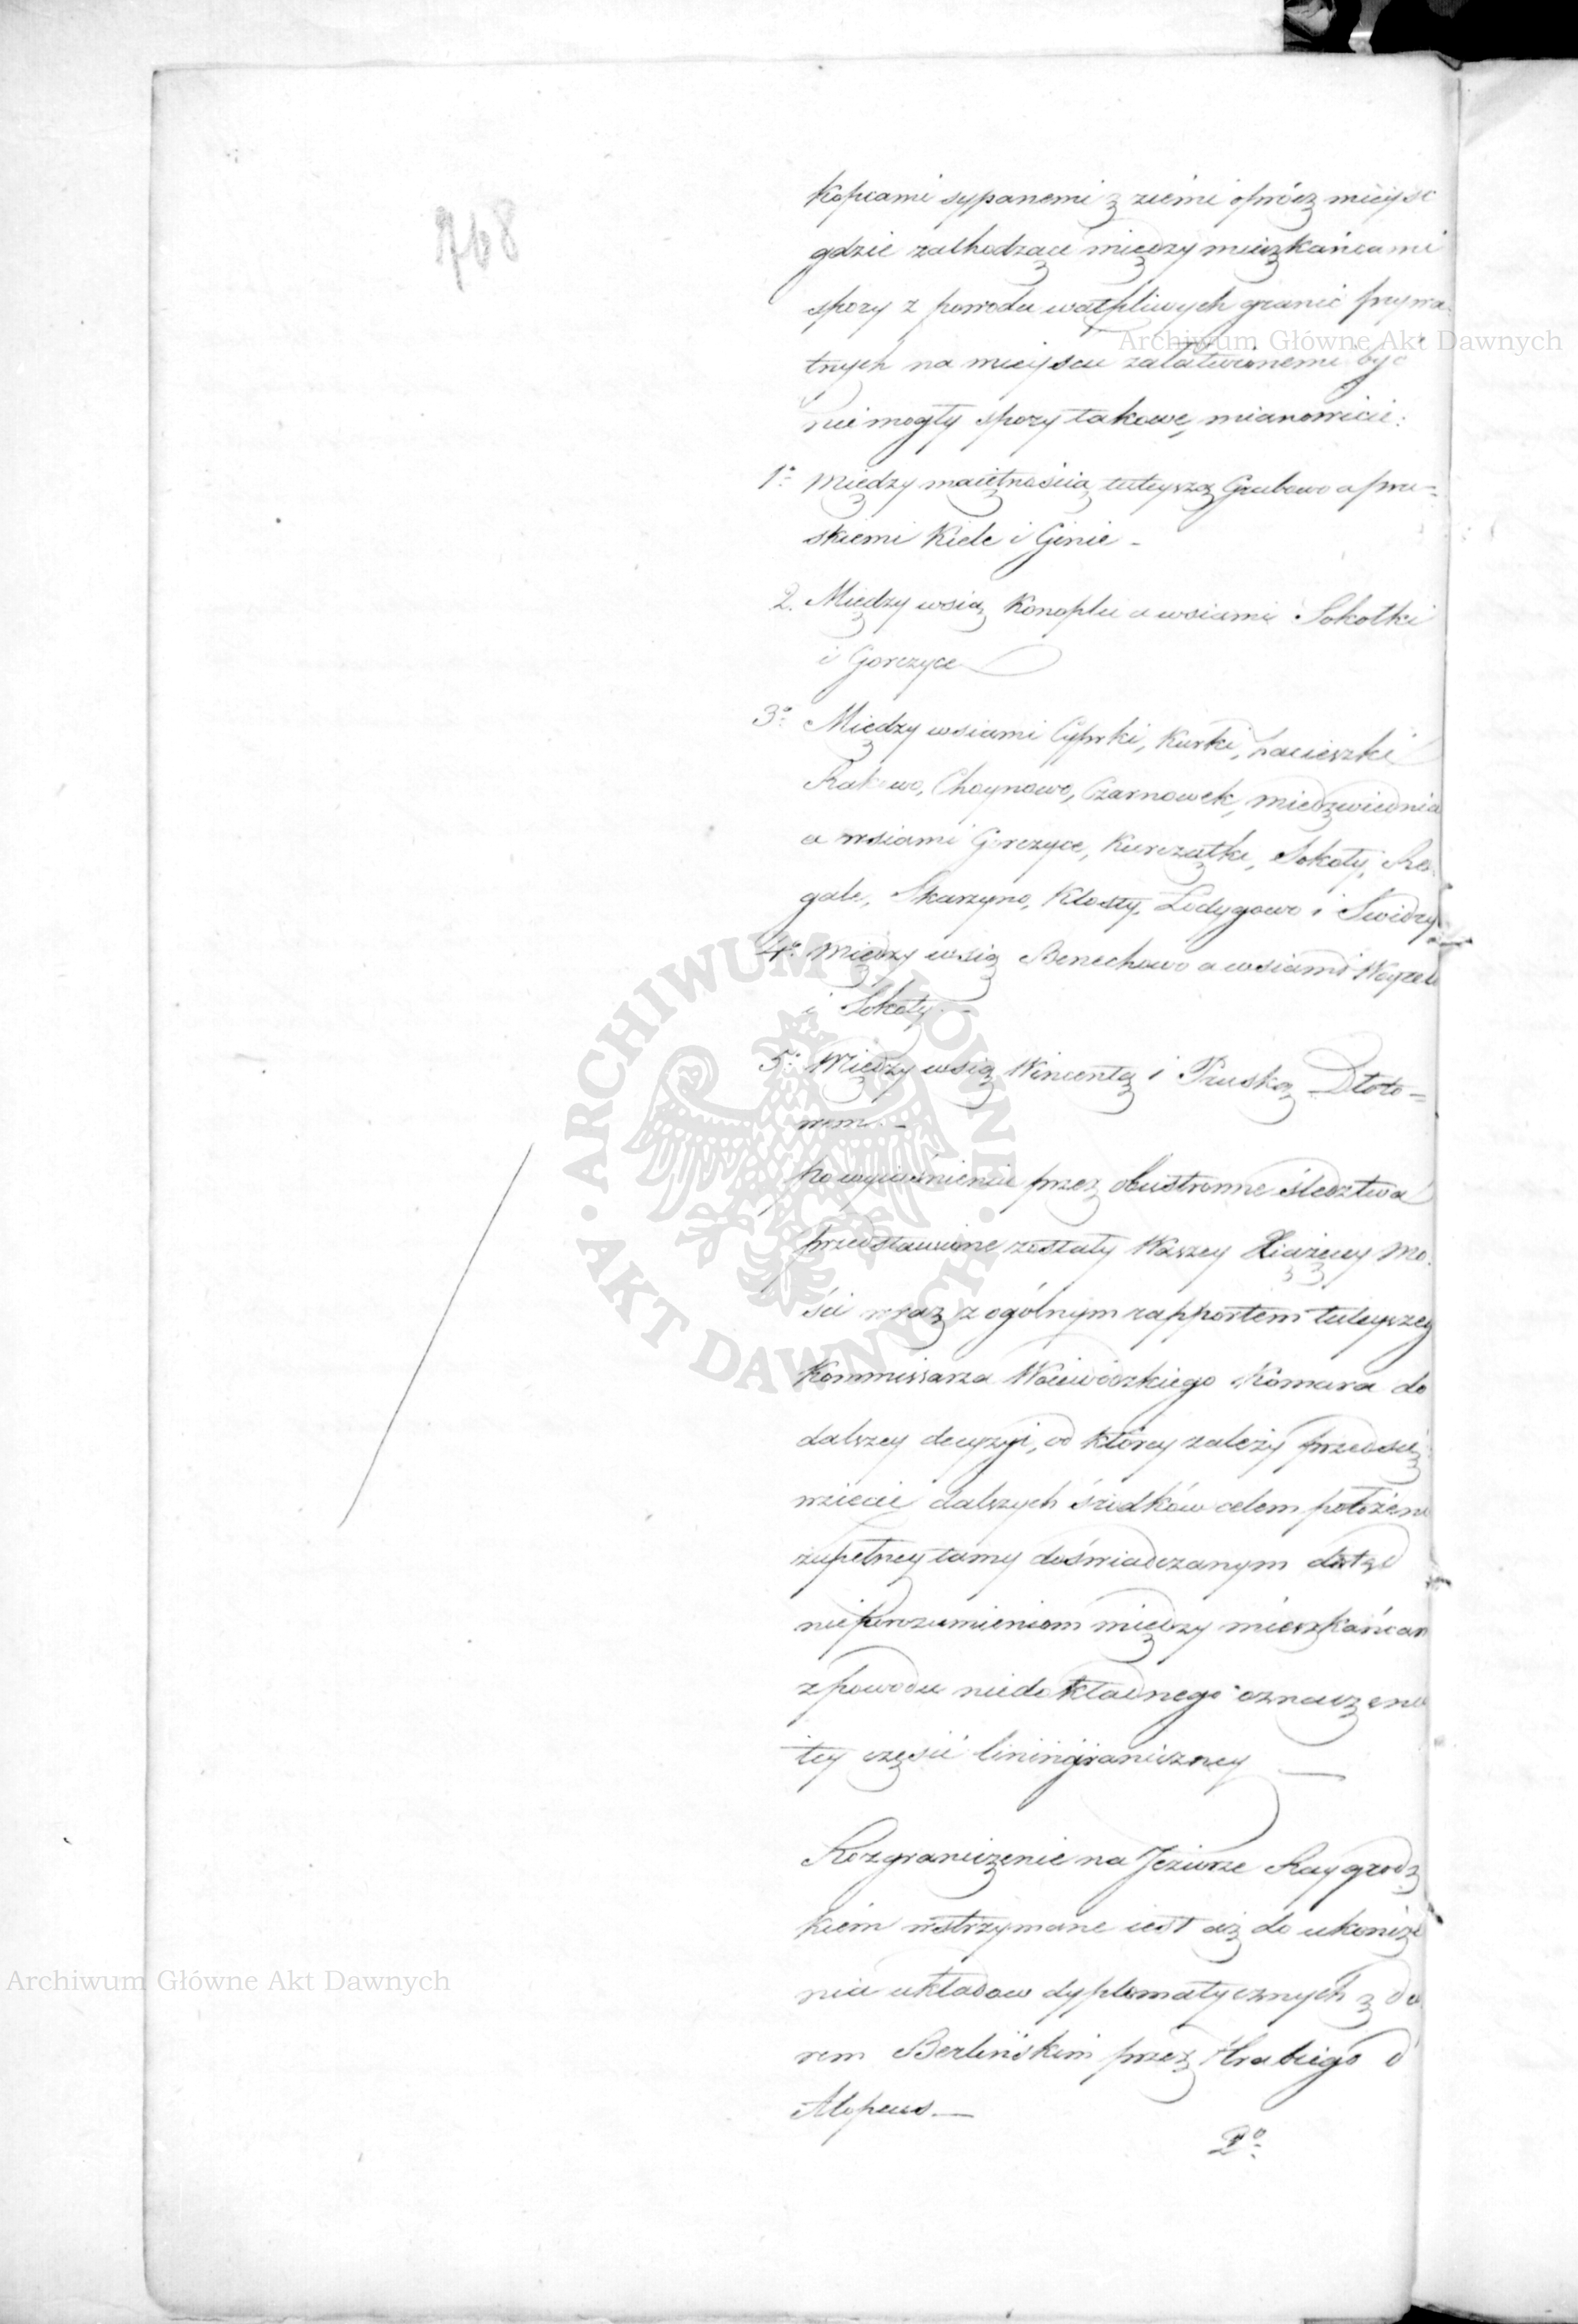 768
Kopcami sypanemi z ziemi oprócz mieysc
gdzie zachodzące między mieszkańcami
spory z powodu wątpliwych granic prywa-
tnych na mieyscu załatwionemi być
niemogły spory takowe, mianowicie:
1º Między maiętnością tuteyszą Grabowo a pru-
skiemi Kiele i Ginie –
2. Między wsią Konopki a wsiami Sokołki
i Gorczyce
3º Między wsiami Cyprki, Kurki, Łacieszki
Rakowo, Choynowo, Czarnowek, Miedzwiednia
a wsiami Gorczyce, Kurczątki, Sokoły, Ro-
gale, Skarzyno, Kłosty, Lodygowo i Swidry
4º Między wsią Benechowo a wsiami
i Sokoły –
5º Między wsią Wincentą i Pruską Dłoto-
wem –
po wyiaśnieniu przez obustronne śledztwa
przedstawione zostały Waszey Xiążęcey Mo-
ści wraz z ogólnym rapportem tuteyszeg
Kommissarza Woiewódzkiego Komara do
dalszey decyzyi, od którey zależy przedsię-
wzięcie dalszych środków celem położeni
zupełney tamy doświadczanym dotąd
nieporozumieniom między mieszkańcam
z powodu niedokładnego oznaczeni
tey części linii graniczney —
Rozgraniczenie na Jeziorze Raygrodz
kiém wstrzymane iest aż do ukończe
nia układow dyplomatycznych z do
rem Berlińskim przez Hrabiego d
Alopeus —
2º
Archiwum Główne Akt Dawnych
Archiwum Główne Akt Dawnych
ARCHIWUM GŁÓWNE · AKT DAWNYCH ·